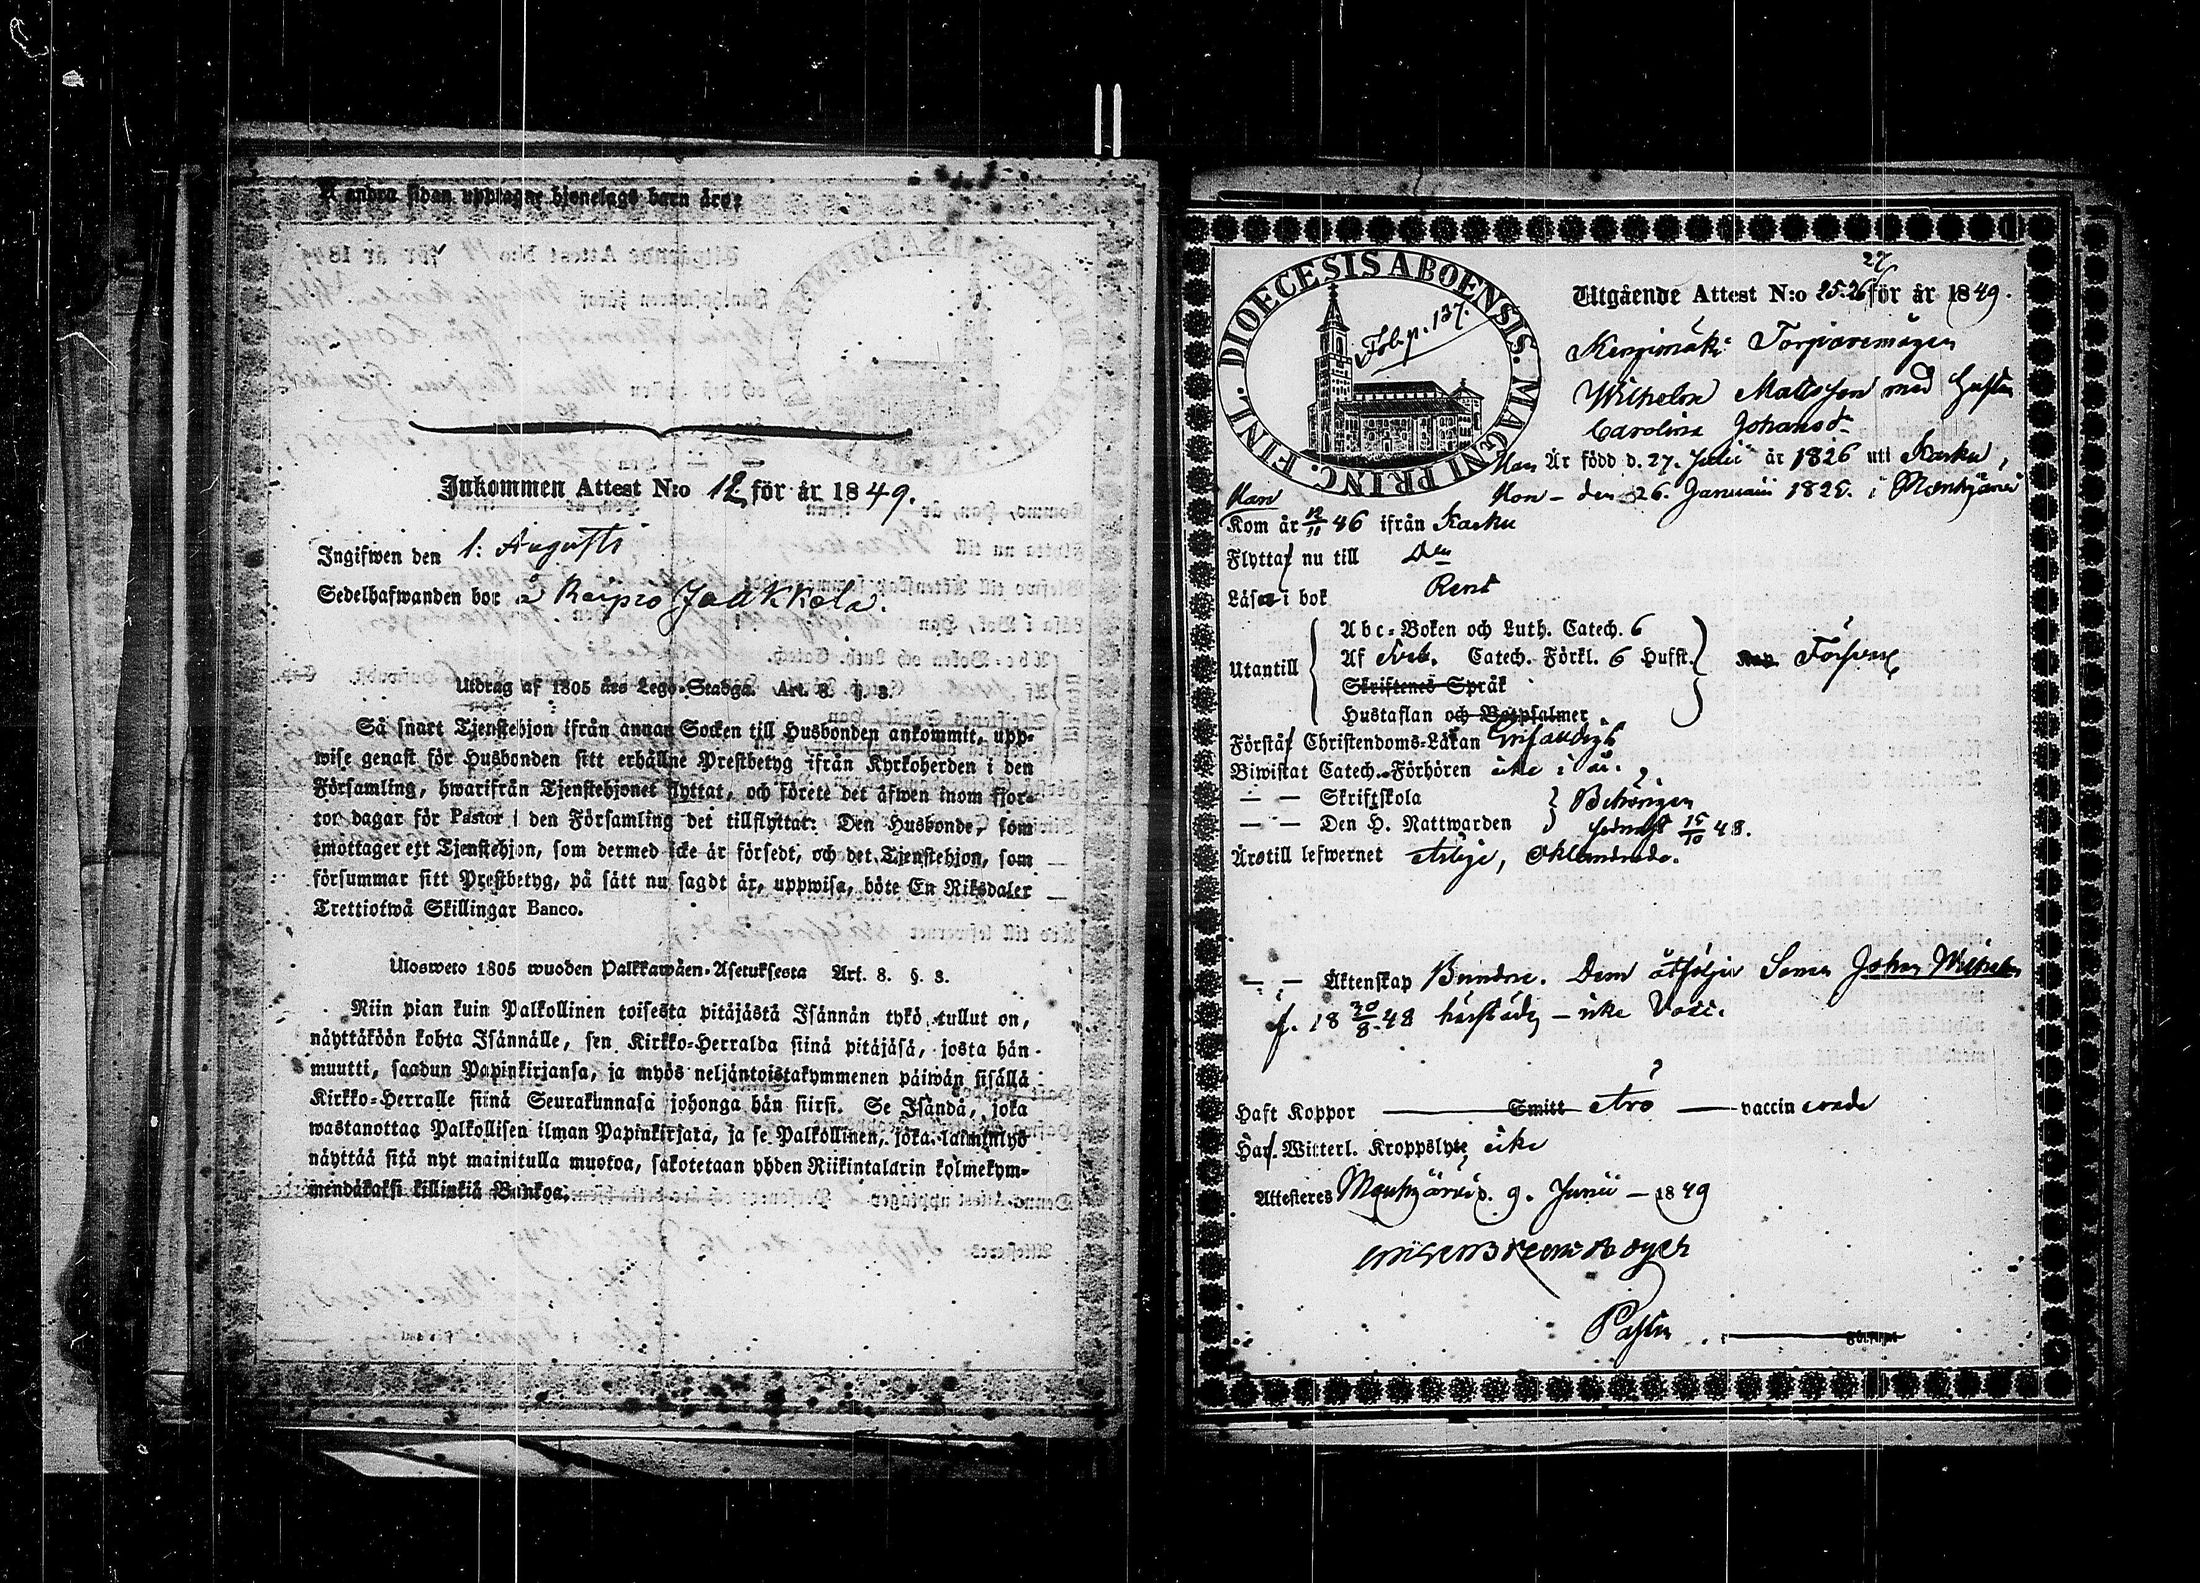 Å andra sidan upptagne hjonelags barn äro:
Inkommen Attest N:o 12 för år 1849.
Ingifwen den 1: Augusti
Sedelhafwanden bor å Raipio Jaakkola.
Utdrag af 1805 års Lego-Stadga. Art. 8. §. 8.
Så snart Tjenstehjon ifrån annan Socken till Husbonden ankommit, upp-
wise genast för Husbonden sitt erhållne Prestbetyg ifrån Kyrkoherden i den
Församling, hwarifrån Tjenstehjonet flyttat, och förete det äfwen inom fjor-
ton dagar för Pastor i den Församling det tillflyttat: Den Husbonde, som
emottager ett Tjenstehjon, som dermed icke är försedt, och det Tjenstehjon, som
försummar sitt Prestbetyg, på sätt nu sagdt är, uppwisa, böte En Riksdaler
Trettiotwå Skillingar Banco.
Ulosweto 1805 wuoden Palkkawäen-Asetuksesta Art. 8. §. 8.
Niin pian kuin Palkollinen toisesta pitäjästä Isännän tykö tullut on,
näyttäköön kohta Isännälle, sen Kirkko-Herralda siinä pitäjäsä, josta hän
muutti, saadun Papinkirjansa, ja myös neljäntoistakymmenen päiwän sisällä
Kirkko-Herralle siinä Seurakunnasa johonga hän siirsi. Se Isändä, joka
wastanottaa Palkollisen ilman Papinkirjata, ja se Palkollinen, joka laiminlyö
näyttää sitä nyt mainitulla muotoa, sakotetaan yhden Riikintalarin kolmekym-
mendäkaksi killinkiä Bankoa.
DIOECESIS ABOENSIS. MAGNI PRINC. FINL.
Fol. p. 137.
27
Utgående Attest N:o 25.26 för år 1849.
Kenjimäki Torparemågen
Wilhelm Mattsson med hustru
Carolina Johansd.
Han Är född d. 27. Julii år 1826 uti Karku,
Hon - den 26. Januarii 1825. i
Han
Kom år 12/11 46 ifrån Karku
Flytta nu till D:o
Läsa i bok Rent
Utantill
Abc-Boken och Luth. Catech. 6
Af Catech. Förkl. 6 Hufst.
Skriftenes Språk
Hustaflan och Botpsalmer
Förstå Christendoms-Läran
Biwistat Catech. Förhören icke i år.
— — Skriftskola
Behörigen
— — Den H. Nattwarden
senast 15/10 48.
Äro till lefwernet
— — Äktenskap Bundne. Dem åtföljer Sonen Johan Wilhelm
f. 18 20/8 48 härstädes — icke Vacc.
Haft Koppor — Smitt — äro — vaccinerade
Haf. Witterl. Kroppslyte icke
Attesteras d. 9. Junii — 1849
Pastor